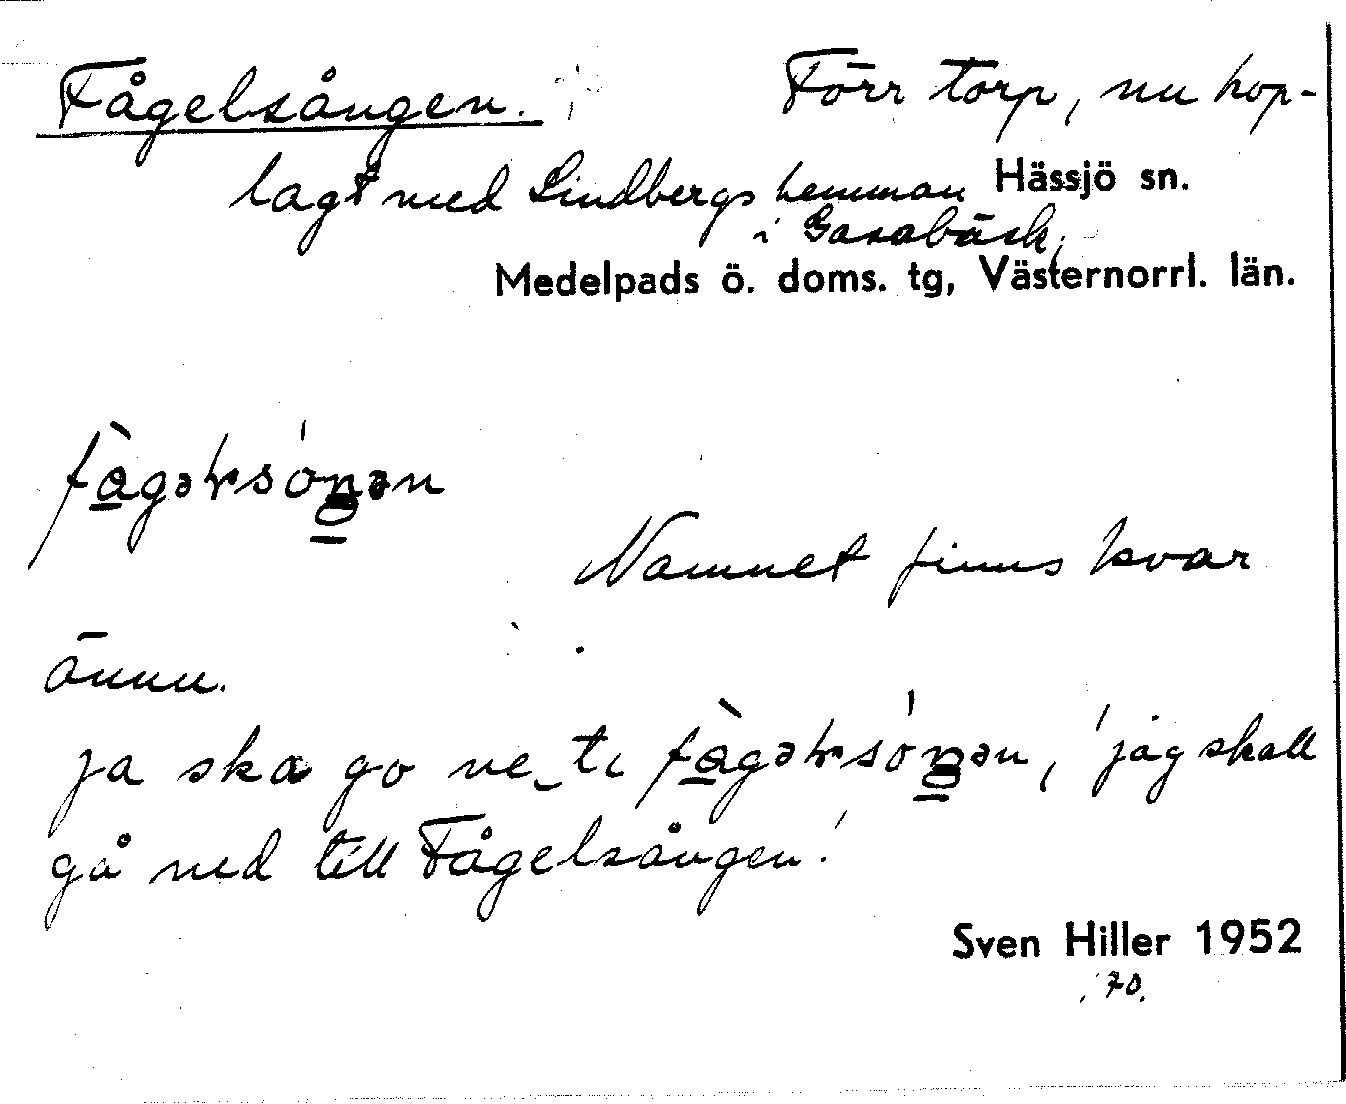 Fågelsången. Förr torp, nu hop-
lagt med Lindbergs hemman Hässjö sn.
i Gasabäck.
Medelpads ö. doms. tg, Västernorrl. län.
Namnet finns kvar
ännu.
ja ska go ne ti 'jag skall
gå ned till Fågelsången.'
Sven Hiller 1952
70.